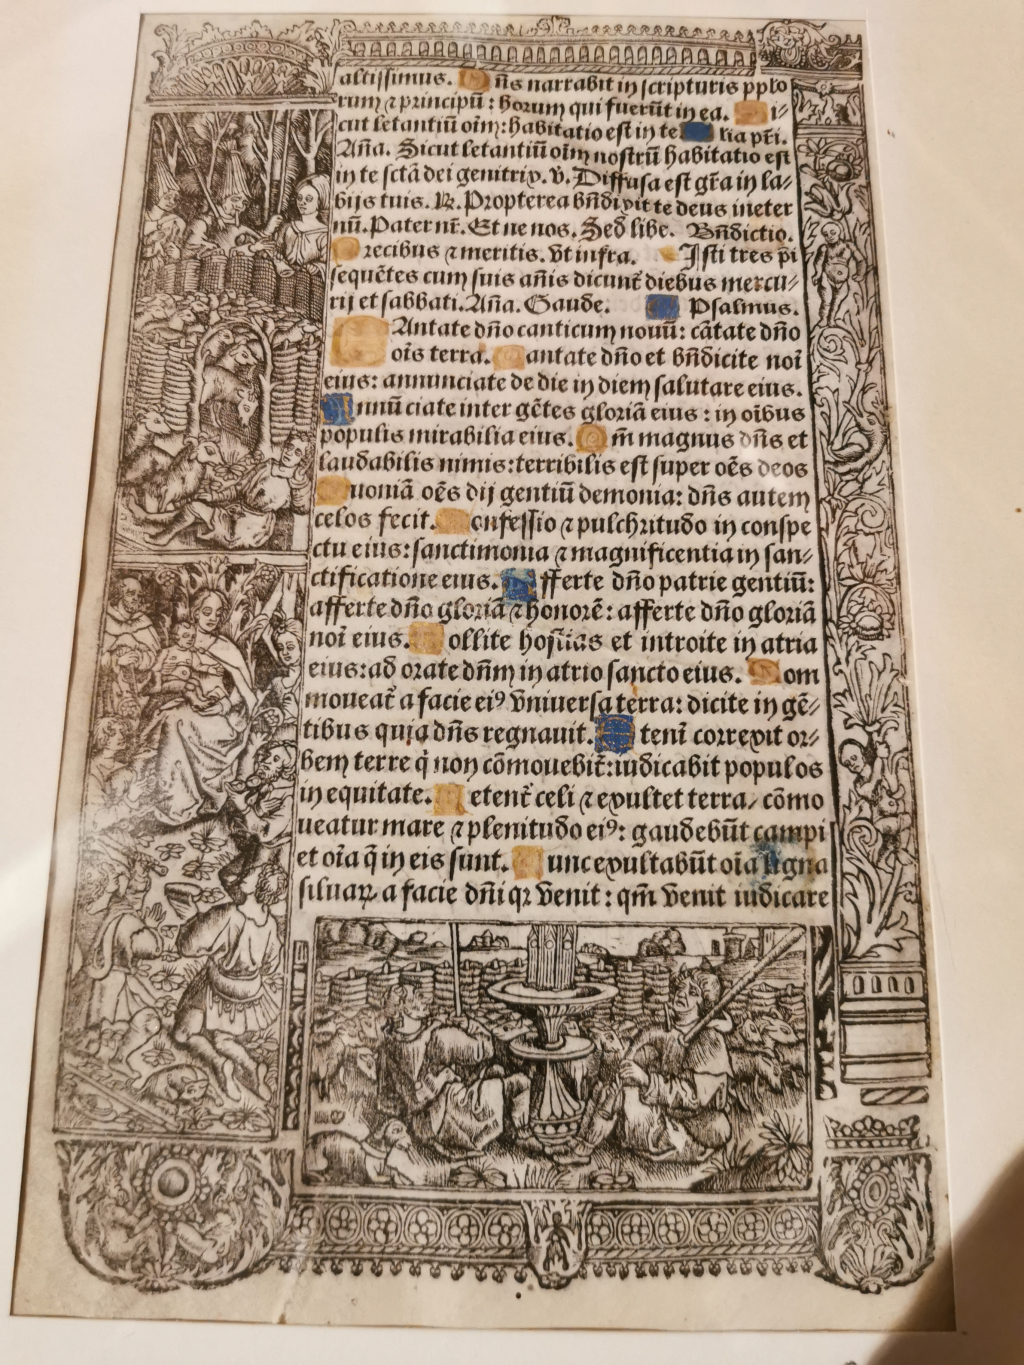 altissimus. Dñs narrabit in scripturis pplo
rum ⁊ principũ: horum qui fuerũt in ea. i⸗
cut letantiũ oĩm: habitatio est in te lia pr̃i.
Aña. Sicut letantiũ oĩm nostrũ habitatio est
in te sctã dei genitrix. v̄. Diffusa est gr̃a in la⸗
bijs tuis. R̃. Propterea bñdixit te deus in eter
nũ. Pater nr̃. Et ne nos. Sed libe. Bñdictio.
recibus ⁊ meritis. vt infra. Isti tres p̃i
sequẽtes cum suis añis dicunt̃ diebus mercu⸗
rij et sabbati. Aña. Gaude. Psalmus.
Antate dño canticum nouũ: cãtate dño
oĩs terra. antate dño et bñdicite noĩ
eius: annunciate de die in diem salutare eius.
A nnũ ciate inter gẽtes gloriã eius: in oĩbus
populis mirabilia eius. Q m̃ magnus dñs et
laudabilis nimis: terribilis est super oẽs deos
uoniã oẽs dij gentiũ demonia: dñs autem
celos fecit. onfessio ⁊ pulchritudo in conspe
ctu eius: sanctimonia ⁊ magnificentia in san⸗
ctificatione eius. A fferte dño patrie gentiũ:
afferte dño gloriã ⁊ honorẽ: afferte dño gloriã
noĩ eius. ollite hostias et introite in atria
eius: ad orate dñm in atrio sancto eius. om
moueat̃ a facie ei⁹ vniuersa terra: dicite in gẽ⸗
tibus quia dñs regnauit. E tenĩ correxit or⸗
bem terre q̃ non cõmouebit̃: iudicabit populos
in equitate. etent̃ celi ⁊ exultet terra/ cõmo
ueatur mare ⁊ plenitudo ei⁹: gaudebũt campi
et oĩa q̃ in eis sunt. unc exultabũt oĩa ligna
siluaꝝ a facie dñi qꝛ venit: qm̃ venit iudicare